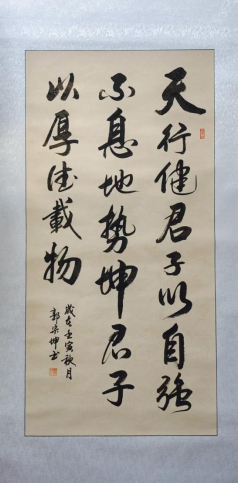 天行健君子以自强
不息地势坤君子
以厚德載物
歲在壬寅秋月
郭
坤书